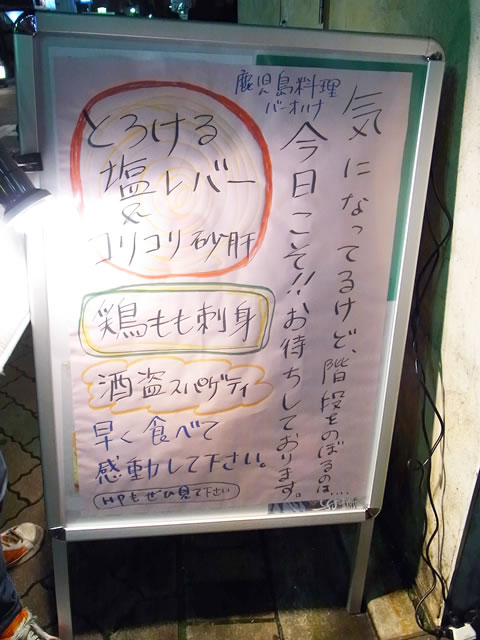 鹿児島料理
バーオハナ
気になってるけど、階段をのぼるのは....
今日こそ!!お待ちしております。
とろける
塩レバー
&
コリコリ砂肝
鶏もも刺身
酒盗スパゲティ
早く食べて
感動して下さい。
HPもぜひ見て下さい